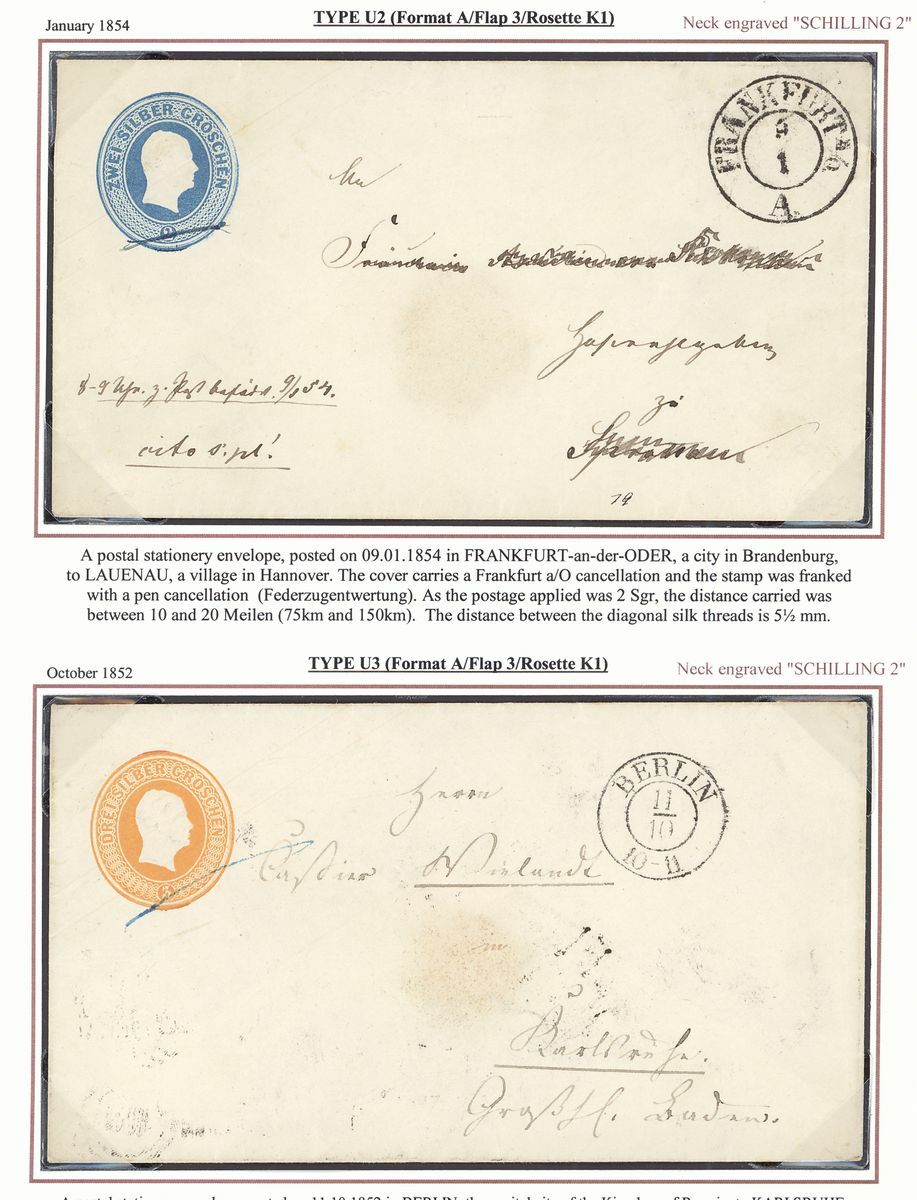 January 1854
TYPE U2 (Format A/Flap 3/Rosette K1)
Neck engraved "SCHILLING 2"
ZWEI·SILBER·GROSCHEN
2
FRANKFURT a O
1
A.
An
Fräulein
8-9 Uhr. z. Post 9/1 54.
cito s. pl!
zu
19
A postal stationery envelope, posted on 09.01.1854 in FRANKFURT-an-der-ODER, a city in Brandenburg,
to LAUENAU, a village in Hannover. The cover carries a Frankfurt a/O cancellation and the stamp was franked
with a pen cancellation  (Federzugentwertung). As the postage applied was 2 Sgr, the distance carried was
between 10 and 20 Meilen (75km and 150km).  The distance between the diagonal silk threads is 5½ mm.
October 1852
TYPE U3 (Format A/Flap 3/Rosette K1)
Neck engraved "SCHILLING 2"
DREI·SILBER·GROSCHEN
3
BERLIN
11
10
10-11
Herrn
Cassier Wielandt
in
Karlsruhe.
Großh. Baden.
A postal stationery envelope, posted on 11.10.1852 in BERLIN, the capital city of the Kingdom of Prussia, to KARLSRUHE,